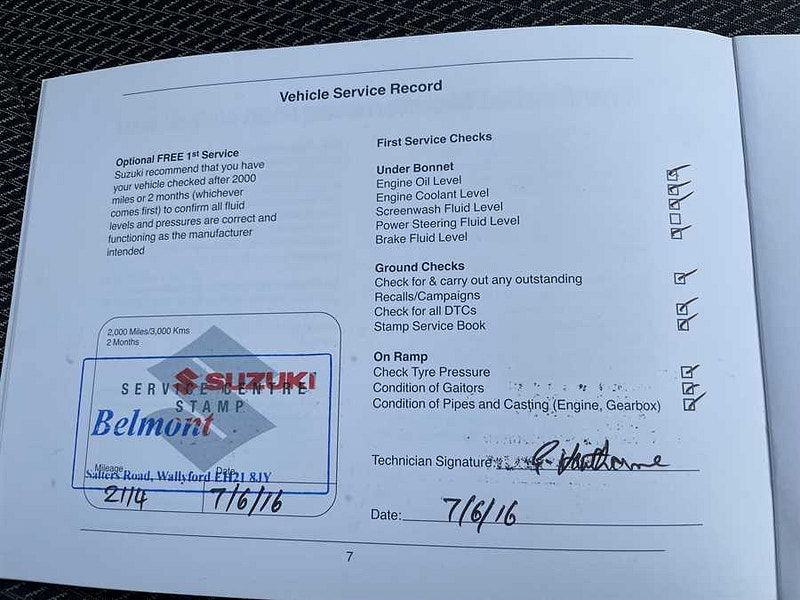 Vehicle Service Record
Optional FREE 1st Service
Suzuki recommend that you have
your vehicle checked after 2000
miles or 2 months (whichever
comes first) to confirm all fluid
levels and pressures are correct and
functioning as the manufacturer
intended
2,000 Miles/3,000 Kms
2 Months
SUZUKI
SERVICE CENTRE
STAMP
Belmont
Mileage
Date
Salters Road, Wallyford EH21 8JY
2114
7/6/16
First Service Checks
Under Bonnet
Engine Oil Level
Engine Coolant Level
Screenwash Fluid Level
Power Steering Fluid Level
Brake Fluid Level
Ground Checks
Check for & carry out any outstanding
Recalls/Campaigns
Check for all DTCs
Stamp Service Book
On Ramp
Check Tyre Pressure
Condition of Gaitors
Condition of Pipes and Casting (Engine, Gearbox)
Technician Signature:
Date: 7/6/16
7